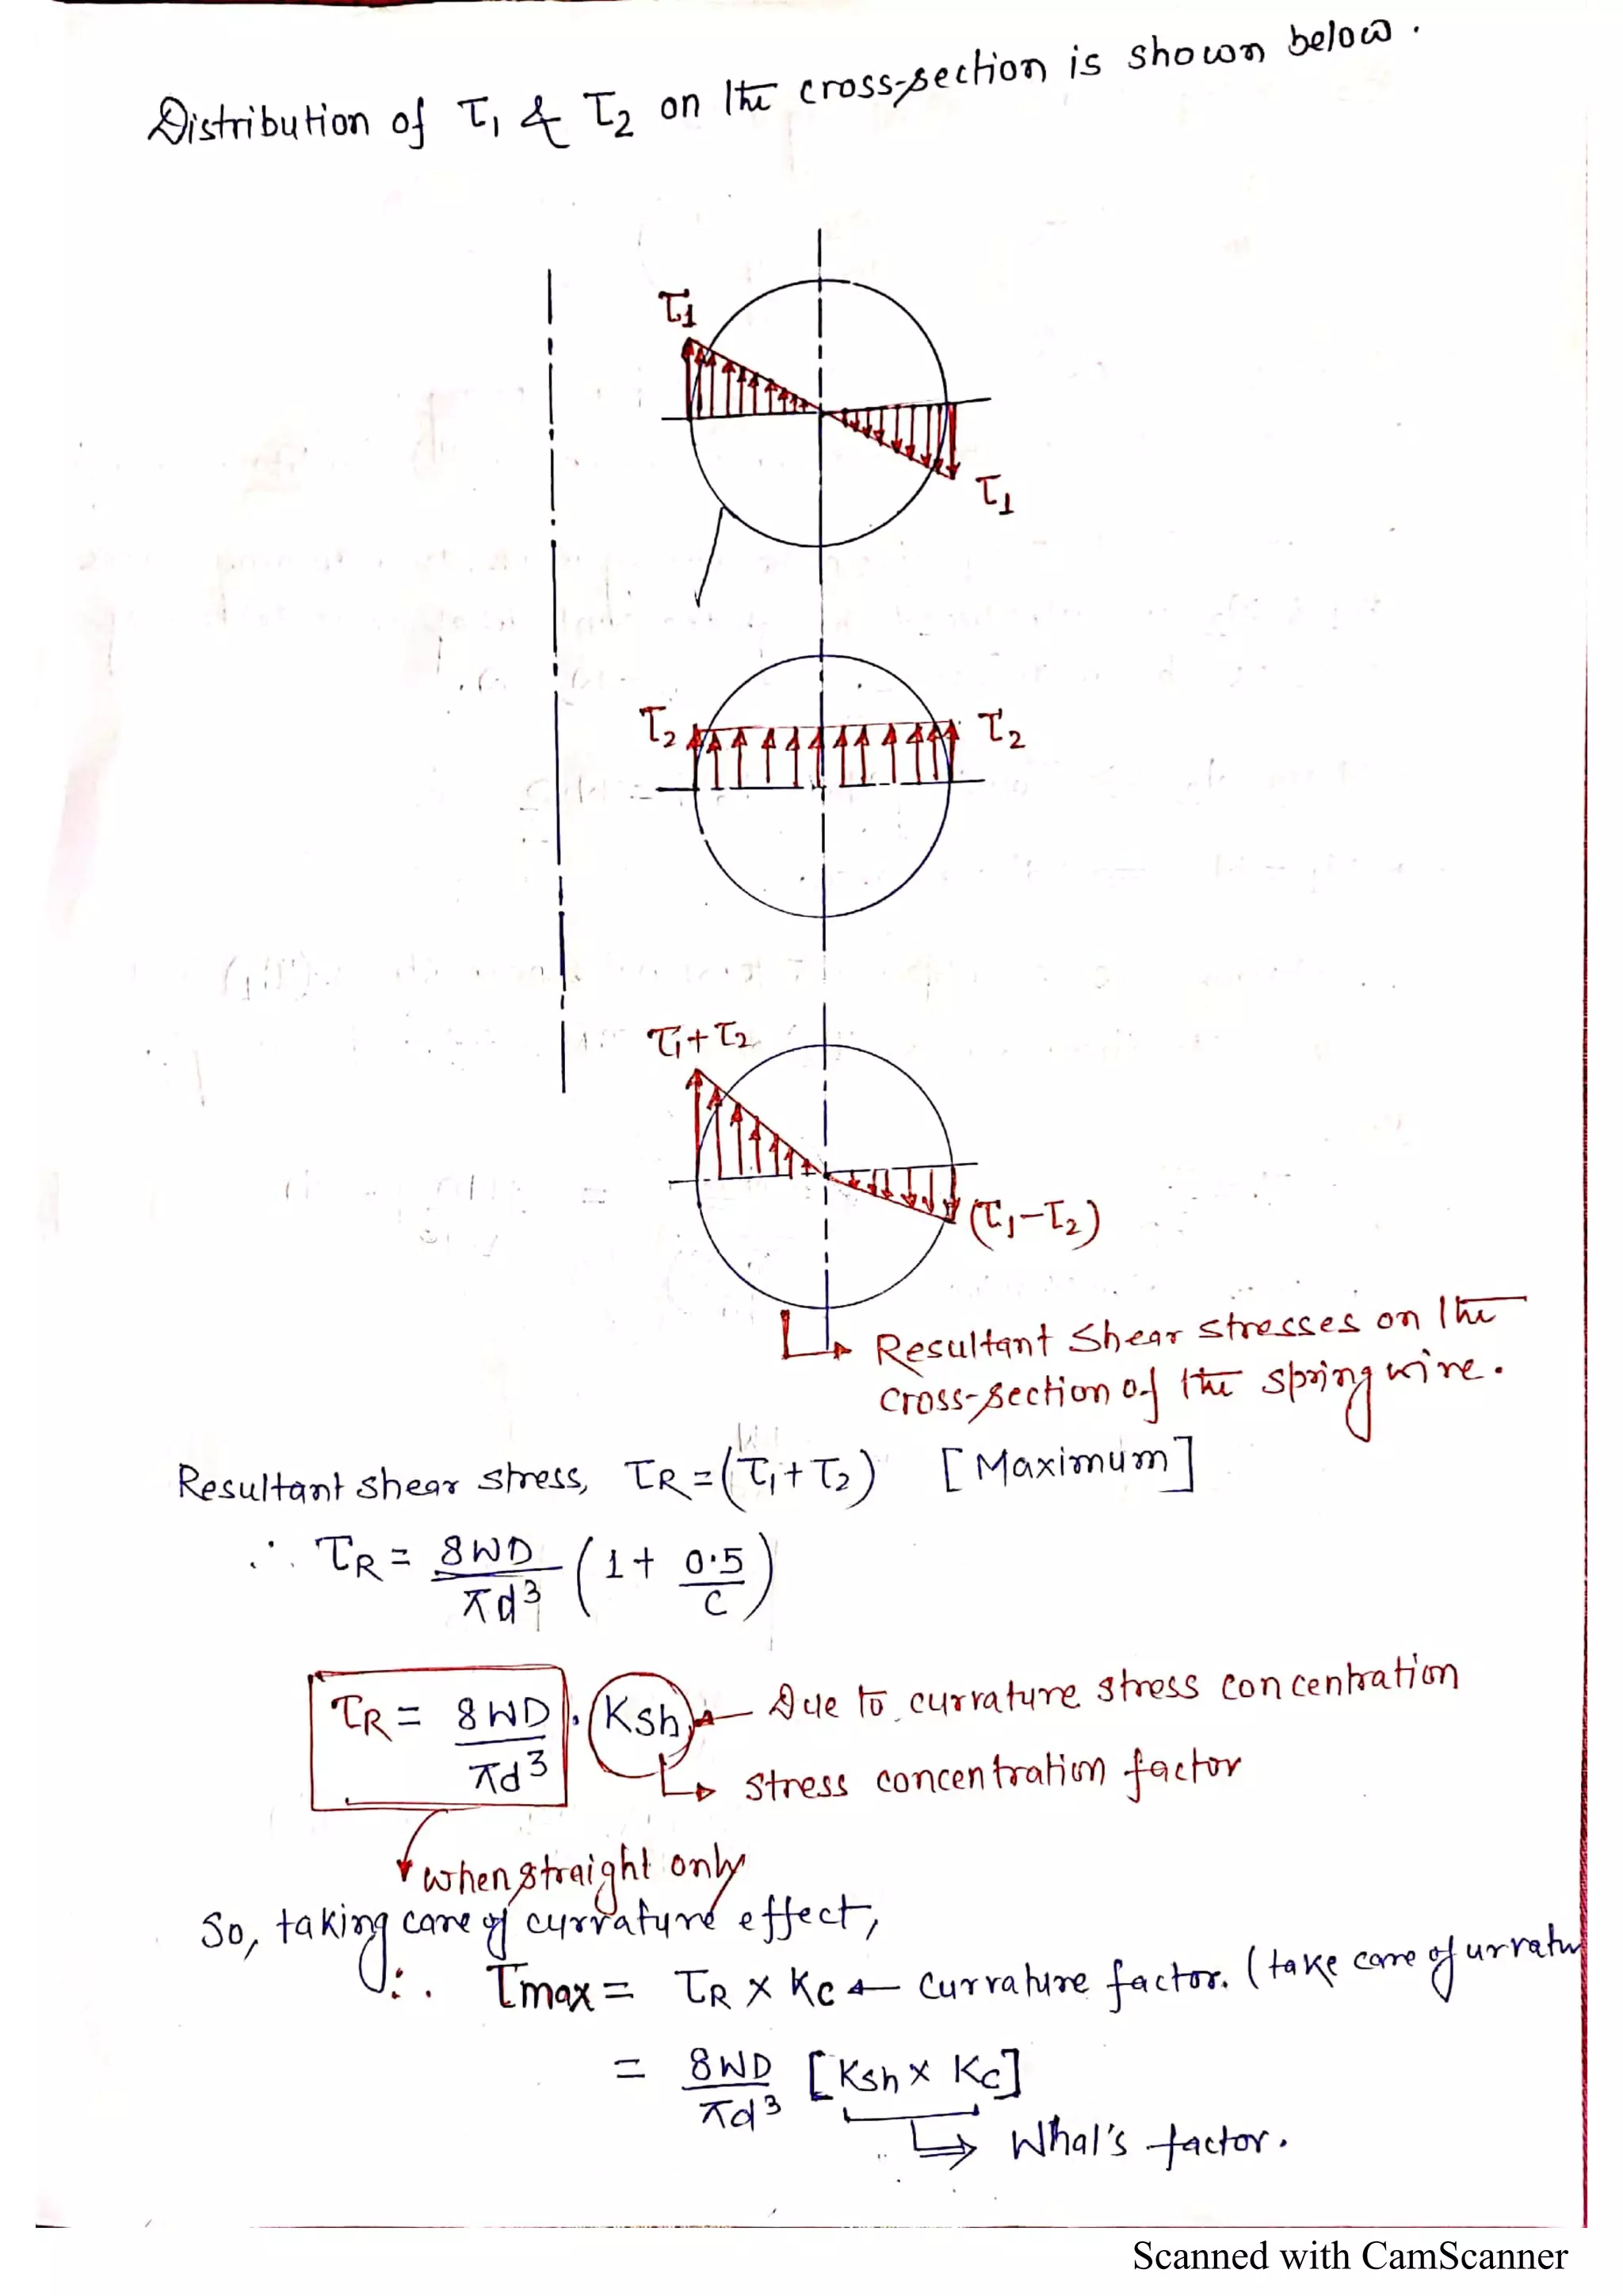 Distribution of τ1 & τ2 on the cross-section is shown below.
τ1
τ1
τ2
τ2
τ1+τ2
(τ1-τ2)
Resultant shear stresses on the
cross-section of the spring wire.
Resultant shear stress, τR = (τ1+τ2) [Maximum]
∴ τR = 8WD/πd³ (1 + 0.5/C)
τR = 8WD/πd³ . Ksh ← Due to currature stress concentration
stress concentration factor
when straight only
So, taking care of currature effect,
∴ τmax = τR × Kc ← currature factor. (take care of urratu
= 8WD/πd³ [Ksh × Kc]
Whal's factor.
Scanned with CamScanner